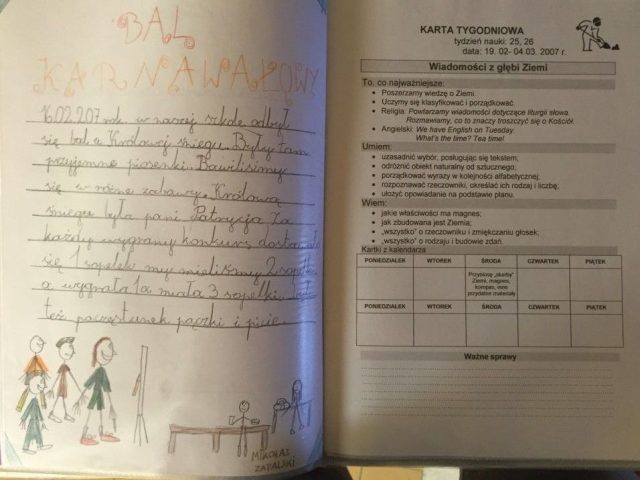 BAL
KARNAWAŁOWY
16.02.207 rok w naszej szkole odbył
się bal u Królowej śniegu. Były tam
przyjemne piosenki. Bawiliśmy
się w różne zabawy. Królową
śniegu była pani Patrycja. Za
każdy wygrany konkurs dostawało
się 1 sopelek my mieliśmy 2 sopelki
a wygrała 1a miała 3 sopelki.
też poczęstunek pączki i picie.
MIKOŁAJ
ZAPALSKI
KARTA TYGODNIOWA
tydzień nauki: 25, 26
data: 19. 02- 04 03. 2007 r.
Wiadomości z głębi Ziemi
To, co najważniejsze:
• Poszerzamy wiedzę o Ziemi.
• Uczymy się klasyfikować i porządkować.
• Religia: Powtarzamy wiadomości dotyczące liturgii słowa.
Rozmawiamy, co to znaczy troszczyć się o Kościół.
• Angielski: We have English on Tuesday.
What's the time? Tea time!
Umiem:
• uzasadnić wybór, posługując się tekstem;
• odróżnić obiekt naturalny od sztucznego;
• porządkować wyrazy w kolejności alfabetycznej;
• rozpoznawać rzeczowniki, określać ich rodzaj i liczbę;
• ułożyć opowiadanie na podstawie planu.
Wiem:
• jakie właściwości ma magnes;
• jak zbudowana jest Ziemia;
• „wszystko” o rzeczowniku i zmiękczaniu głosek;
• „wszystko” o rodzaju i budowie zdań.
Kartki z kalendarza
PONIEDZIAŁEK WTOREK ŚRODA CZWARTEK PIĄTEK
Przynoszę „skarby”
Ziemi, magnes,
kompas, inne
przydatne materiały
PONIEDZIAŁEK WTOREK ŚRODA CZWARTEK PIĄTEK
Ważne sprawy